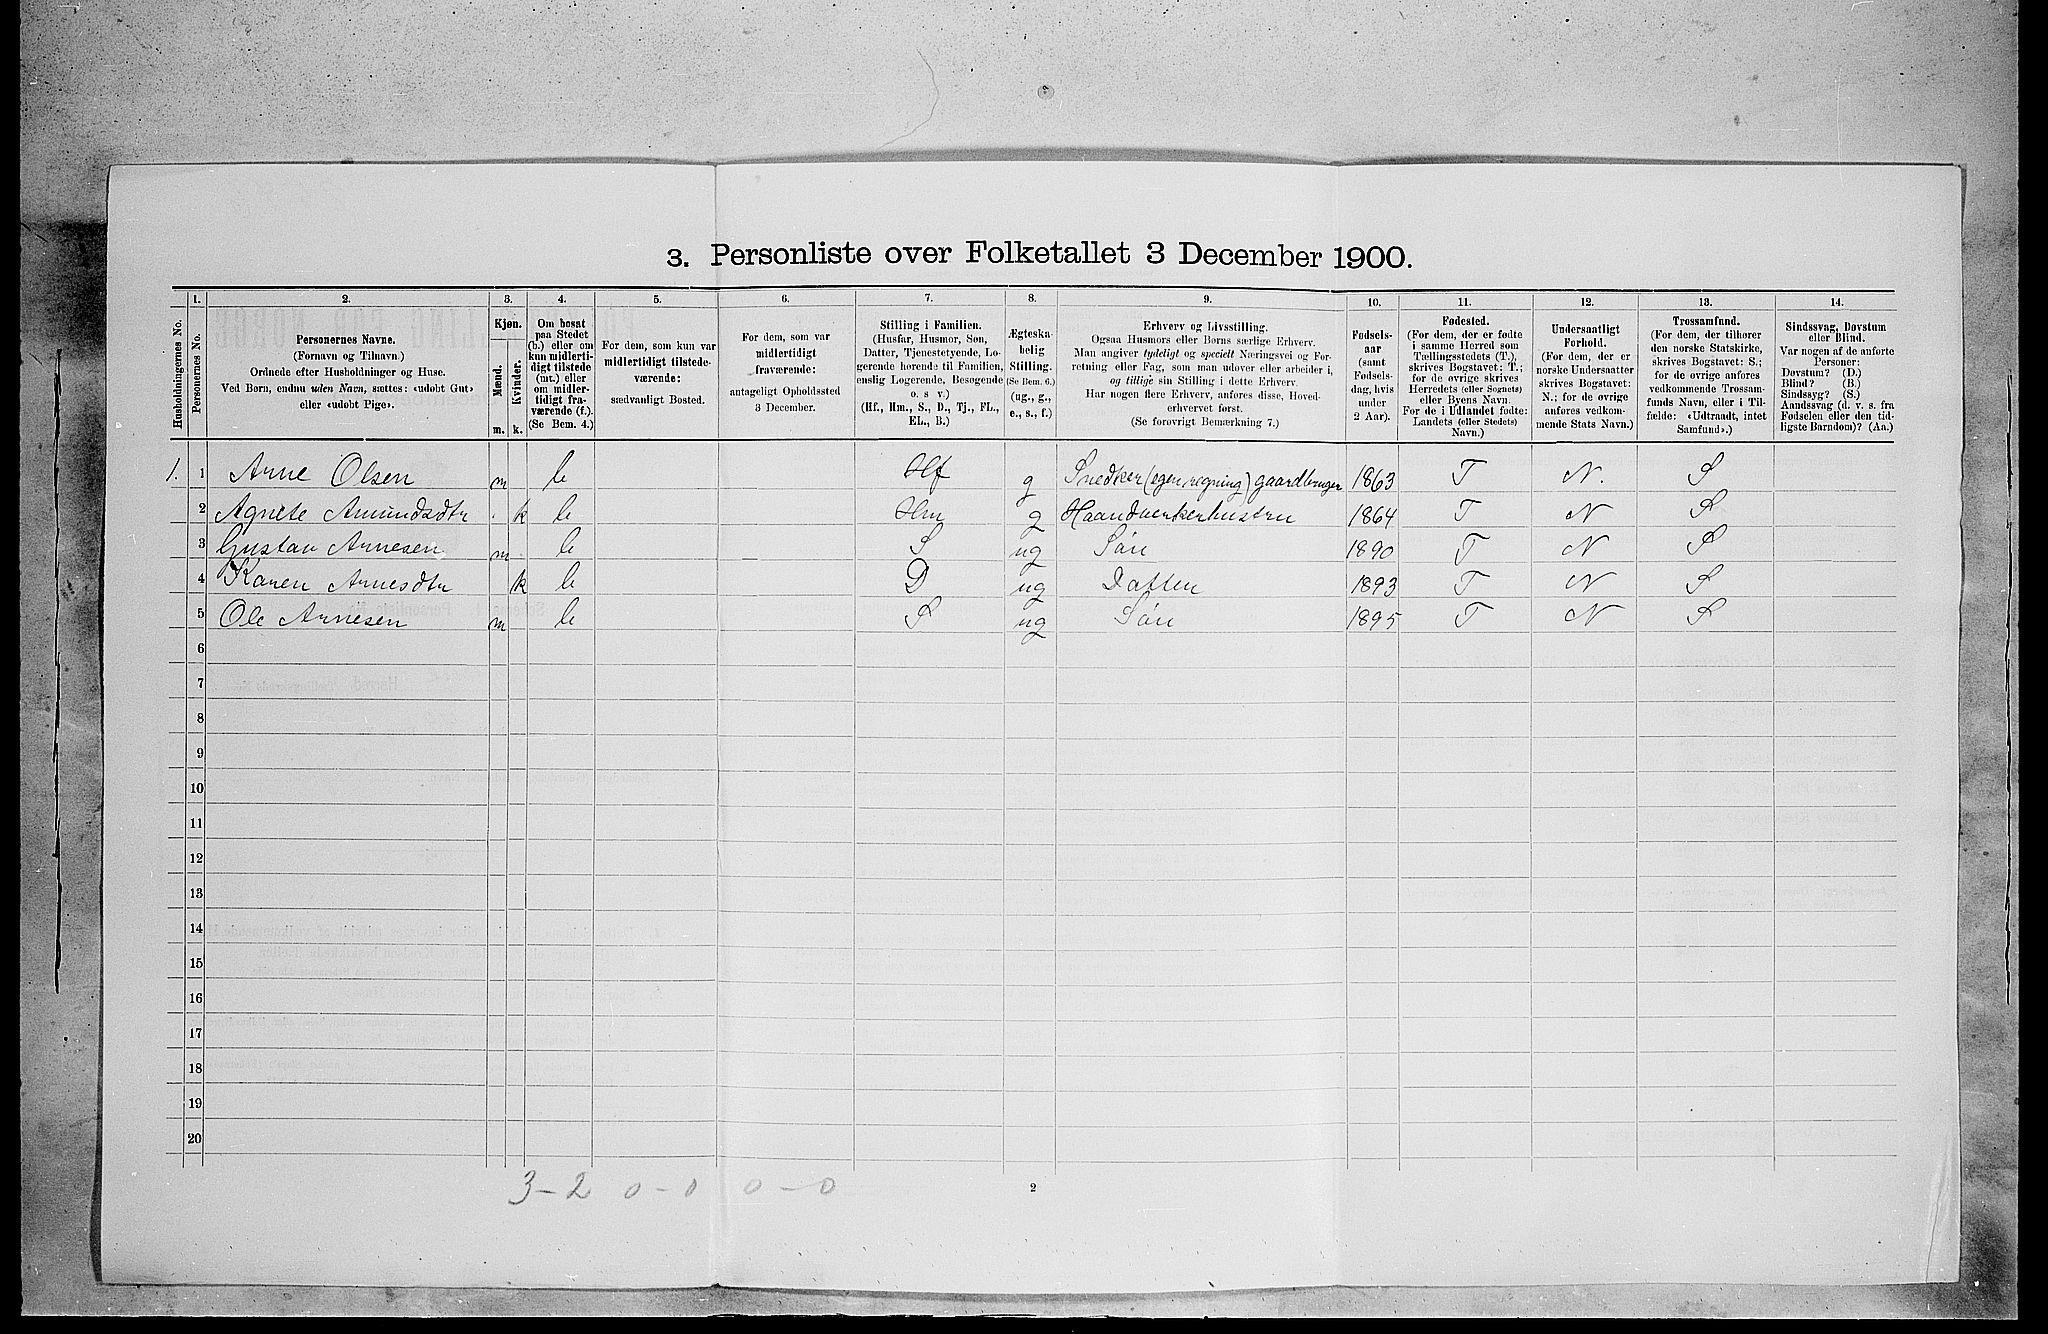 3. Personliste over Folketallet 3 December 1900.
Husholdningernes No.
1.
Personernes No.
2.
Personernes Navne.
(Fornavn og Tilnavn.)
Ordnede efter Husholdninger og Huse.
Ved Børn, endnu uden Navn, sættes: «udøbt Gut»
eller «udøbt Pige».
3.
Kjøn.
Mænd.
Kvinder.
m.
k.
4.
Om bosat
paa Stedet
(b.) eller om
kun midlerti-
digt tilstede
(mt.) eller
om midler-
tidigt fra-
værende (f.).
(Se Bem. 4.)
5.
For dem, som kun var
midlertidigt tilstede-
værende:
sædvanligt Bosted.
6.
For dem, som var
midlertidigt
fraværende:
antageligt Opholdssted
3 December.
7.
Stilling i Familien.
(Husfar, Husmor, Søn,
Datter, Tjenestetyende, Lo-
gerende hørende til Familien,
enslig Logerende, Besøgende
o. s v.)
(Hf., Hm., S., D., Tj., FL.,
EL., B.)
8.
Ægteska-
belig
Stilling.
(Se Bem. 6.)
(ug., g.,
e., s., f.)
9.
Erhverv og Livsstilling.
Ogsaa Husmors eller Børns særlige Erhverv.
Man angiver tydeligt og specielt Næringsvei og For-
retning eller Fag, som man udover eller arbeider i,
og tillige sin Stilling i dette Erhverv.
Har nogen flere Erhverv, anføres disse, Hoved-
erhvervet først.
(Se forøvrigt Bemærkning 7.)
10.
Fødsels-
aar
(samt
Fødsels-
dag, hvis
under
2 Aar).
11.
Fødested.
(For dem, der er fødte
i samme Herred som
Tællingsstedets (T.),
skrives Bogstavet: T.;
for de øvrige skrives
Herredets (eller Sognets)
eller Byens Navn.
For de i Udlandet fødte:
Landets (eller Stedets)
Navn.)
12.
Undersaatligt
Forhold.
(For dem, der er
norske Undersaatter
skrives Bogstavet:
N.; for de øvrige
anføres vedkom-
mende Stats Navn.)
13.
Trossamfund.
(For dem, der tilhører
den norske Statskirke,
skrives Bogstavet: S.;
for de øvrige anføres
vedkommende Trossam-
funds Navn, eller i Til-
fælde: «Udtraadt, intet
Samfund».)
14.
Sindssvag, Døvstum
eller Blind.
Var nogen af de anførte
Personer:
Døvstum? (D.)
Blind? (B.)
Sindssyg? (S.)
Aandssvag (d. v. s. fra
Fødselen eller den tid-
ligste Barndom)? (Aa.)
1. 1 Arne Olsen m b Hf g Snedker (egen regning) gaardbruger 1863 T N. S
2 Agnete Amundsdtr k b Hm g Haandverkerhustru 1864 T N S
3 Gustav Arnesen m b S ug Søn 1890 T N S
4 Karen Arnesdtr k b D ug Datter 1893 T N S
5 Ole Arnesen m b S ug Søn 1895 T N S
6
7
8
9
10
11
12
13
14
15
16
17
18
19
20
3-2 0-0 0-0
2